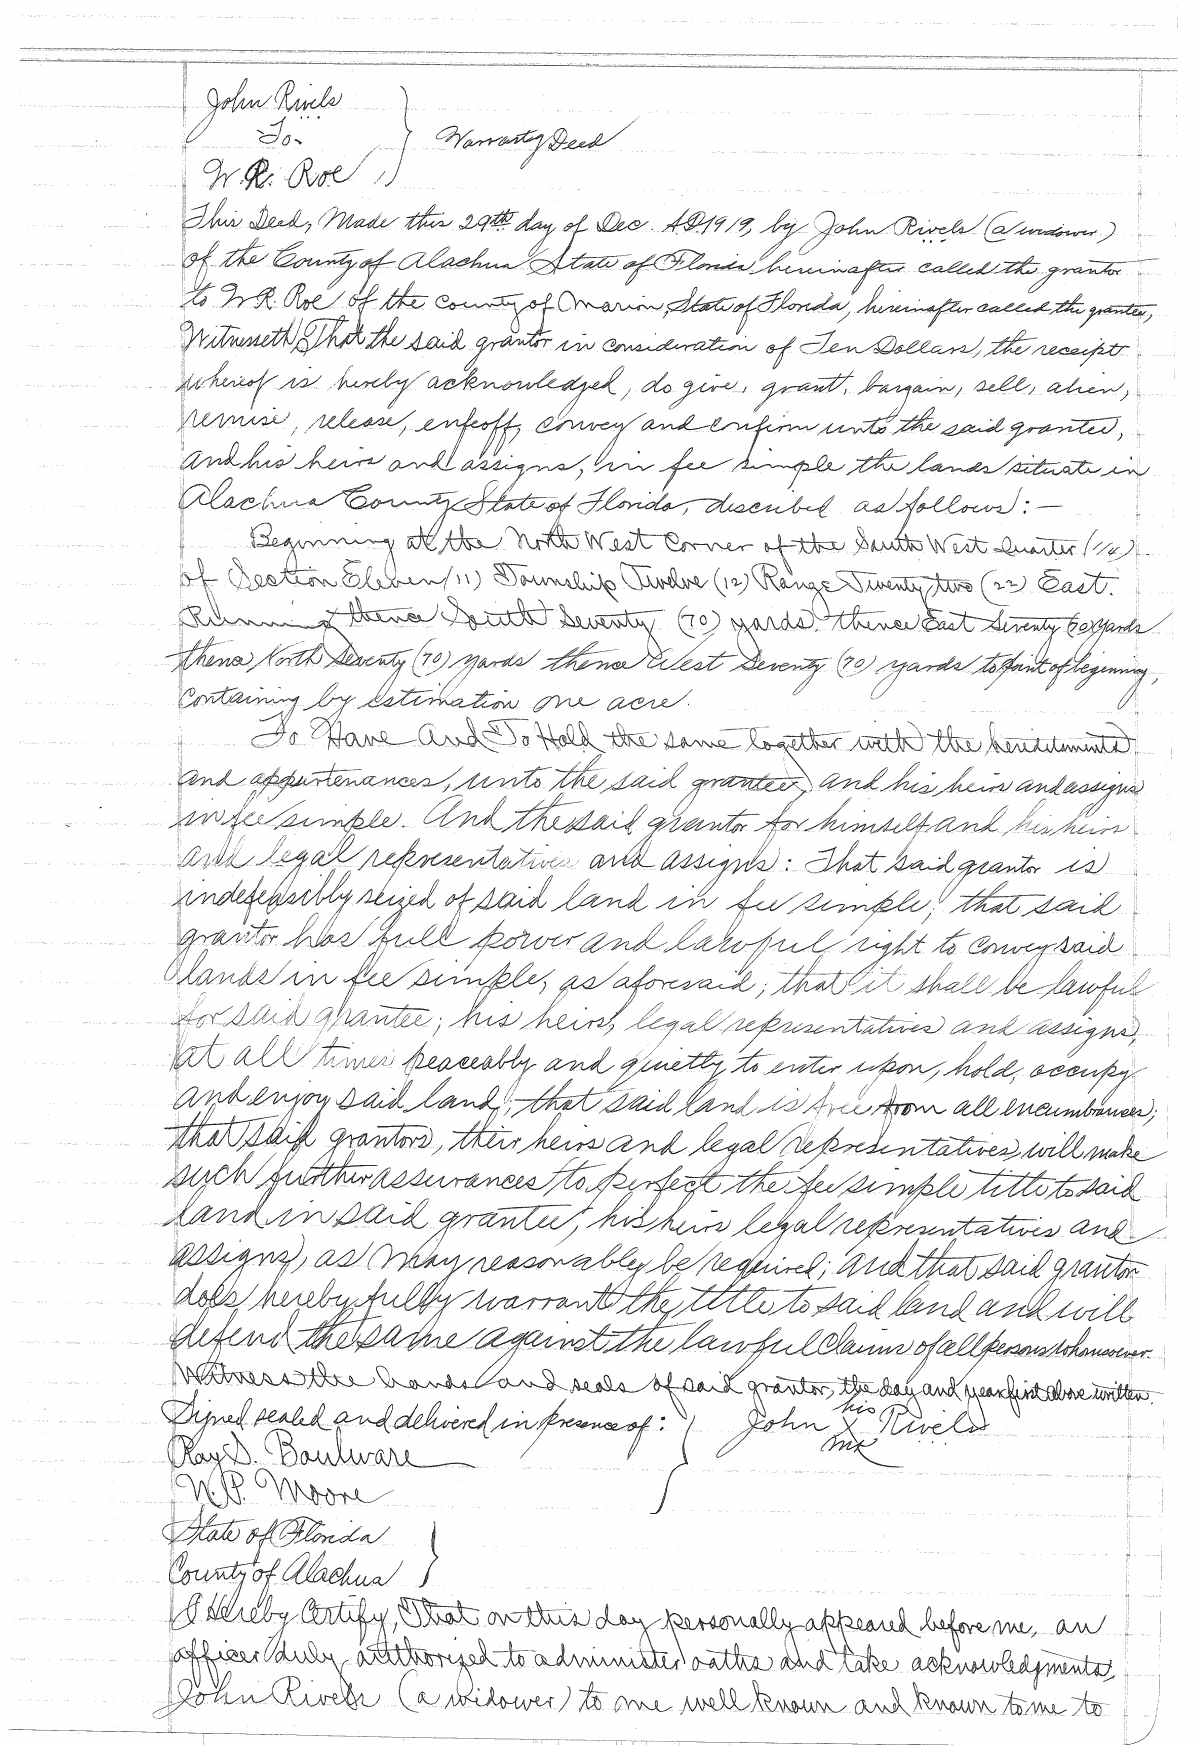 John Rivels
To
W. R. Roe
Warranty Deed
This Deed, Made this 29th day of Dec. A.D. 1919, by John Rivels (a widower)
of the County of Alachua State of Florida hereinafter called the grantor
to W.R. Roe of the county of Marion, State of Florida, hereinafter called the grantee,
Witnesseth, That the said grantor in consideration of Ten Dollars, the receipt
whereof is hereby acknowledged, do give, grant, bargain, sell, alien,
remise, release, enfeoff, convey and confirm unto the said grantee,
and his heirs and assigns, in fee simple the lands situate in
Alachua County State of Florida, described as follows: —
Beginning at the North West Corner of the South West Quarter (1/4)
of Section Eleven (11) Township Twelve (12) Range Twenty two (22) East.
Running thence South Seventy (70) yards. thence East Seventy (70) yards
thence North Seventy (70) yards thence West Seventy (70) yards to point of beginning,
Containing by estimation one acre.
To Have And To Hold the same together with the hereditments
and appurtenances, unto the said grantee, and his heirs and assigns
in fee simple. And the said grantor for himself and his heirs
and legal representatives and assigns: That said grantor is
indefeasibly seized of said land in fee simple; that said
grantor has full power and lawful right to convey said
lands in fee simple, as aforesaid; that it shall be lawful
for said grantee; his heirs, legal representatives and assigns,
at all times peaceably and quietly to enter upon, hold, occupy
and enjoy said land; that said land is free from all encumbrances;
that said grantors, their heirs and legal representatives, will make
such further assurances to perfect the fee simple title to said
land in said grantee, his heirs legal representatives and
assigns, as may reasonably be required; and that said grantor
does hereby fully warrant the title to said land and will
defend the same against the lawful claims of all persons whomsoever.
Witness the hands and seals of said grantor, the day and year first above written.
Signed sealed and delivered in presence of: John his X mk Rivels
Ray D. Boulware
W.P. Moore
State of Florida
County of Alachua
I Hereby Certify, That on this day personally appeared before me, an
officer duly authorized to administer oaths and take acknowledgments,
John Rivels (a widower) to me well known and known to me to